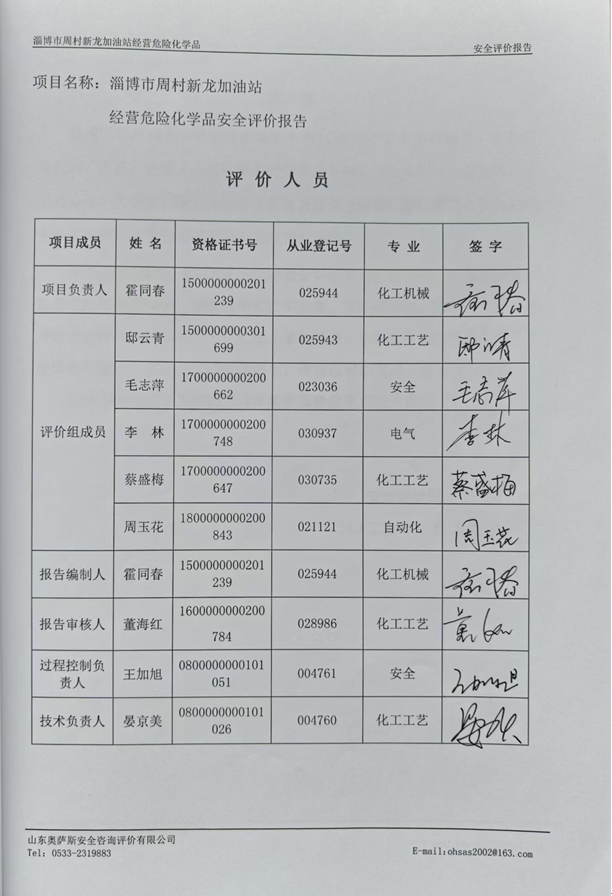 淄博市周村新龙加油站经营危险化学品 安全评价报告
项目名称：淄博市周村新龙加油站
经营危险化学品安全评价报告
评价人员
项目成员 姓名 资格证书号 从业登记号 专业 签字
项目负责人 霍同春 1500000000201239 025944 化工机械
评价组成员 邸云青 1500000000301699 025943 化工工艺 邸云青
毛志萍 1700000000200662 023036 安全 毛志萍
李林 1700000000200748 030937 电气 李林
蔡盛梅 1700000000200647 030735 化工工艺 蔡盛梅
周玉花 1800000000200843 021121 自动化 周玉花
报告编制人 霍同春 1500000000201239 025944 化工机械
报告审核人 董海红 1600000000200784 028986 化工工艺
过程控制负责人 王加旭 0800000000101051 004761 安全
技术负责人 晏京美 0800000000101026 004760 化工工艺
山东奥萨斯安全咨询评价有限公司
Tel: 0533-2319883 E-mail:ohsas2002@163.com